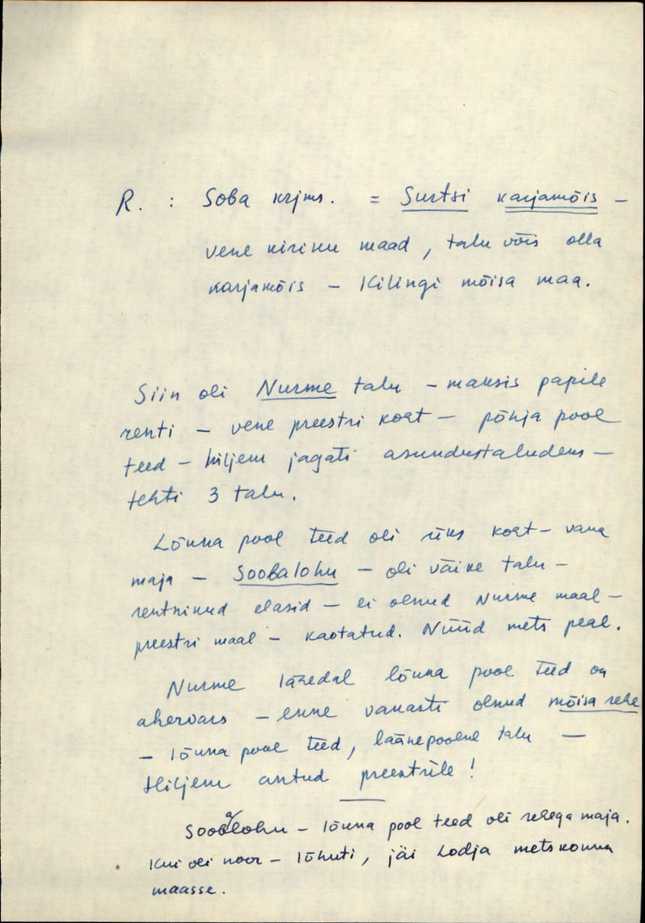 R. : Soba krjms. = Surtsi karjamõis –
vene kiriku maad, talu võis olla
karjamõis – Kilingi mõisa maa.
Siin oli Nurme talu – maksis papile
renti – vene preestri koht – põhja pool
teed – hiljem jagati asundustaludeks –
tehti 3 talu.
Lõuna pool teed oli üks koht – vana
maja – Soobalohu – oli väike talu –
rentnikud elasid – ei olnud Nurme maal –
preestri maal – kaotatud. Nüüd mets peal.
Nurme lähedal lõuna pool teed on
ahervars – enne vanasti olnud mõisa rehe
– lõuna pool teed, läänepoolne talu –
Hiljem antud preestrile!
Soobalohu – lõuna pool teed oli rehega maja.
Kui oli noor – lõhuti, jäi Lodja metskonna
maasse.